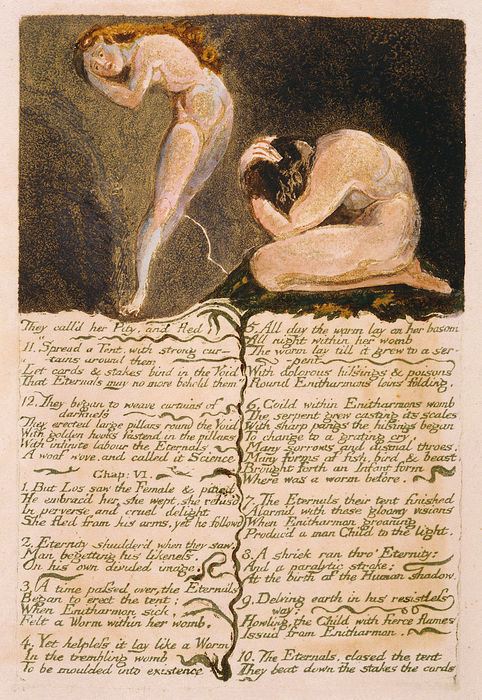 They call'd her Pity, and fled
11. Spread a Tent, with strong cur-
tains around them
Let cords & stakes bind in the Void
That Eternals may no more behold them
12. They began to weave curtains of
darkness
They erected large pillars round the Void
With golden hooks fastend in the pillars
With infinite labour the Eternals
A woof wove, and called it Science
Chap: VI.
1. But Los saw the Female & pitied
He embrac'd her, she wept, she refus'd
In perverse and cruel delight
She fled from his arms, yet he followd
2. Eternity shudder'd when they saw,
Man begetting his likeness,
On his own divided image.
3. A time passed over, the Eternals
Began to erect the tent;
When Enitharmon sick,
Felt a Worm within her womb.
4. Yet helpless it lay like a Worm
In the trembling womb
To be moulded into existence
5. All day the worm lay on her bosom
All night within her womb
The worm lay till it grew to a ser-
pent
With dolorous hissings & poisons
Round Enitharmons loins folding,
6. Coild within Enitharmons womb
The serpent grew casting its scales
With sharp pangs the hissings began
To change to a grating cry,
Many sorrows and dismal throes,
Many forms of fish, bird & beast,
Brought forth an Infant form
Where was a worm before.
7. The Eternals their tent finished
Alarmd with these gloomy visions
When Enitharmon groaning
Produc'd a man Child to the light.
8. A shriek ran thro' Eternity:
And a paralytic stroke;
At the birth of the Human shadow.
9. Delving earth in his resistless
way:
Howling, the Child with fierce flames
Issu'd from Enitharmon.
10. The Eternals, closed the tent
They beat down the stakes the cords